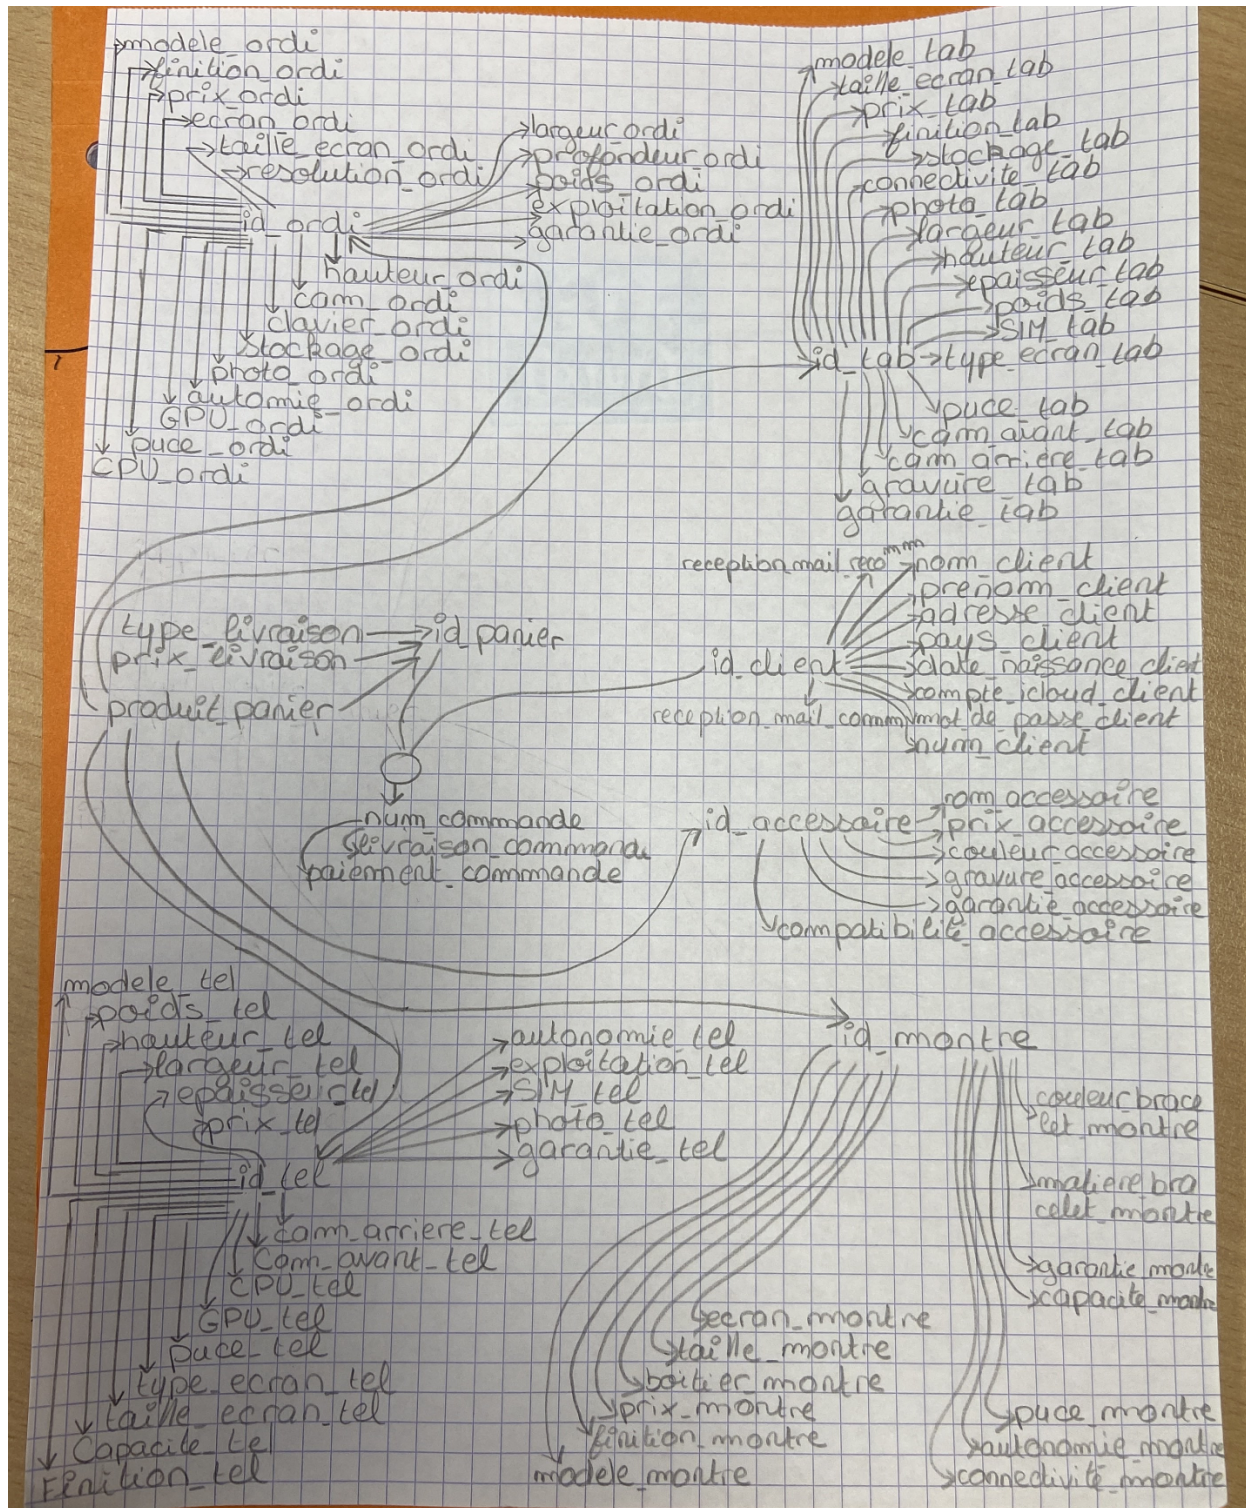 modele_ordi
finition_ordi
prix_ordi
ecran_ordi
taille_ecran_ordi
resolution_ordi
id_ordi
largeur_ordi
profondeur_ordi
poids_ordi
exploitation_ordi
garantie_ordi
hauteur_ordi
cam_ordi
clavier_ordi
stockage_ordi
photo_ordi
automie_ordi
GPU_ordi
puce_ordi
CPU_ordi
modele_tab
taille_ecran_tab
prix_tab
finition_tab
stockage_tab
connectivite_tab
photo_tab
largeur_tab
hauteur_tab
epaisseur_tab
poids_tab
SIM_tab
id_tab
type_ecran_tab
puce_tab
cam_avant_tab
cam_arriere_tab
gravure_tab
garantie_tab
type_livraison
id_panier
prix_livraison
produit_panier
reception_mail_recomm
nom_client
prenom_client
adresse_client
pays_client
id_client
date_naissance_client
compte_icloud_client
reception_mail_comm
mot_de_passe_client
num_client
num_commande
livraison_commande
paiement_commande
id_accessoire
nom_accessoire
prix_accessoire
couleur_accessoire
gravure_accessoire
garantie_accessoire
compatibilite_accessoire
modele_tel
poids_tel
hauteur_tel
largeur_tel
epaisseur_tel
prix_tel
id_tel
autonomie_tel
exploitation_tel
SIM_tel
photo_tel
garantie_tel
cam_arriere_tel
Cam_avant_tel
CPU_tel
GPU_tel
puce_tel
type_ecran_tel
taille_ecran_tel
Capacite_tel
Finition_tel
id_montre
couleur_brace
let_montre
matiere_bra
celet_montre
garantie_montre
capacite_montre
ecran_montre
taille_montre
boitier_montre
prix_montre
finition_montre
modele_montre
puce_montre
autonomie_montre
connectivité_montre